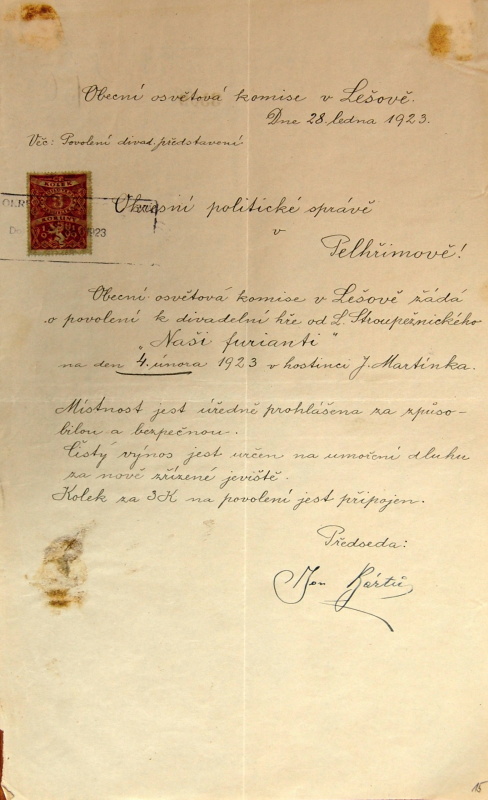 Obecní osvětová komise v Lešově.
Dne 28. ledna 1923.
Věc: Povolení divad. představení
KOLEK
KORUNY
1923
Okresní politické správě
v
Pelhřimově!
Obecní osvětová komise v Lešově žádá
o povolení k divadelní hře od L. Stroupežnického
„Naši furianti"
na den 4. února 1923 v hostinci J. Martínka.
Místnost jest úředně prohlášena za způso-
bilou a bezpečnou.
Čistý výnos jest určen na umoření dluhu
za nově zřízené jeviště.
Kolek za 3K na povolení jest připojen.
Předseda:
Jan
15